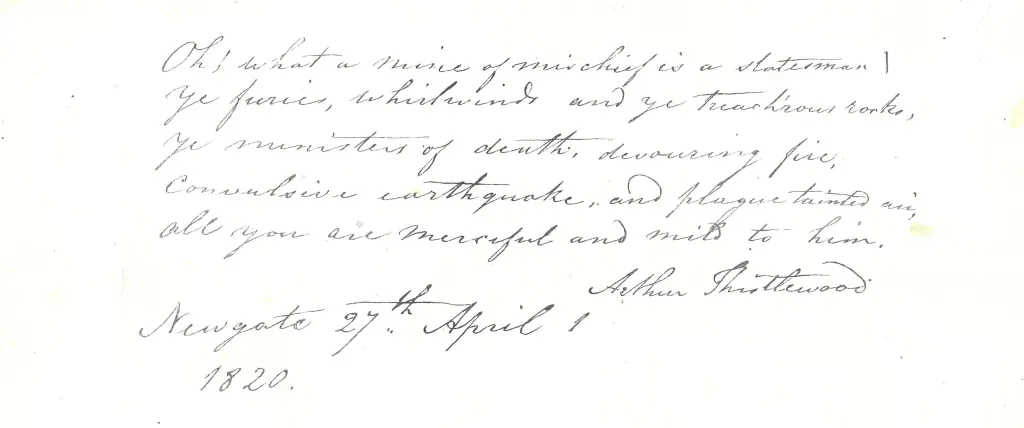 Oh! what a mine of mischief is a statesman!
Ye furies, whirlwinds and ye treach'rous rocks,
Ye ministers of death, devouring fire,
Convulsive earthquake, and plague tainted air,
all you are merciful and mild to him.
Arthur Thistlewood
Newgate 27th April 1
1820.